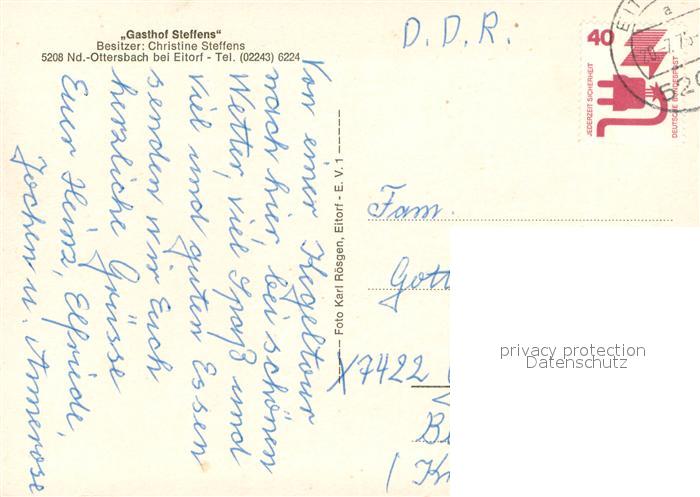 „Gasthof Steffens"
Besitzer: Christine Steffens
5208 Nd.-Ottersbach bei Eitorf - Tel. (02243) 6224
Von einer Kegeltour
nach hier, bei schönen
Wetter, viel Spaß und
viel und guten Essen
senden wir Euch
herzliche Grüsse
Euer Heinz, Elfriede,
Jochen u. Annerose
Foto Karl Rösgen, Eitorf - E. V. 1
D. D. R.
40
JEDERZEIT SICHERHEIT
DEUTSCHE BUNDESPOST
EIT
a
520
Fam.
Gott
X7422
B
(K
privacy protection
Datenschutz